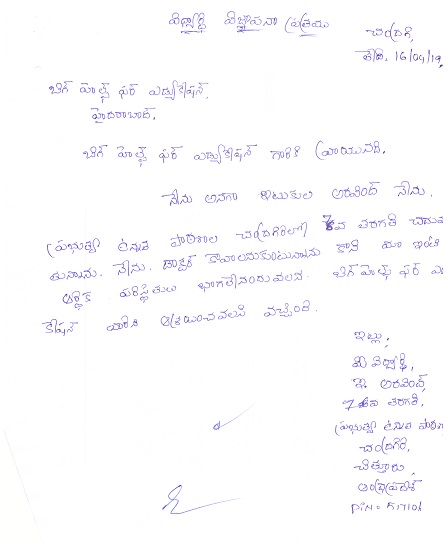 విద్యార్థి విజ్ఞాపనా పత్రము
చంద్రగిరి,
తేది. 16/04/19.
బిగ్ హెల్ప్ ఫర్ ఎడ్యుకేషన్,
హైదరాబాద్.
బిగ్ హెల్ప్ ఫర్ ఎడ్యుకేషన్ గారికి వ్రాయునది.
నేను అనగా ఇటుకుల అరవింద్ నేను.
ప్రభుత్వ ఉన్నత పాఠశాల చంద్రగిరిలో 7వ తరగతి చదువు
తున్నాను. నేను. డాక్టర్ కావాలనుకుంటున్నాను కాని మా ఇంటి
ఆర్థిక పరిస్థితులు బాగలేనందువలన. బిగ్ హెల్ప్ ఫర్ ఎ
కేషన్ వారిని ఆశ్రయించవలసి వచ్చింది.
ఇట్లు,
మీ విద్యార్థి,
ఇ. అరవింద్,
7వ తరగతి,
ప్రభుత్వ ఉన్నత పాఠశా
చంద్రగిరి,
చిత్తూరు,
ఆంధ్రప్రదేశ్
PIN = 517101